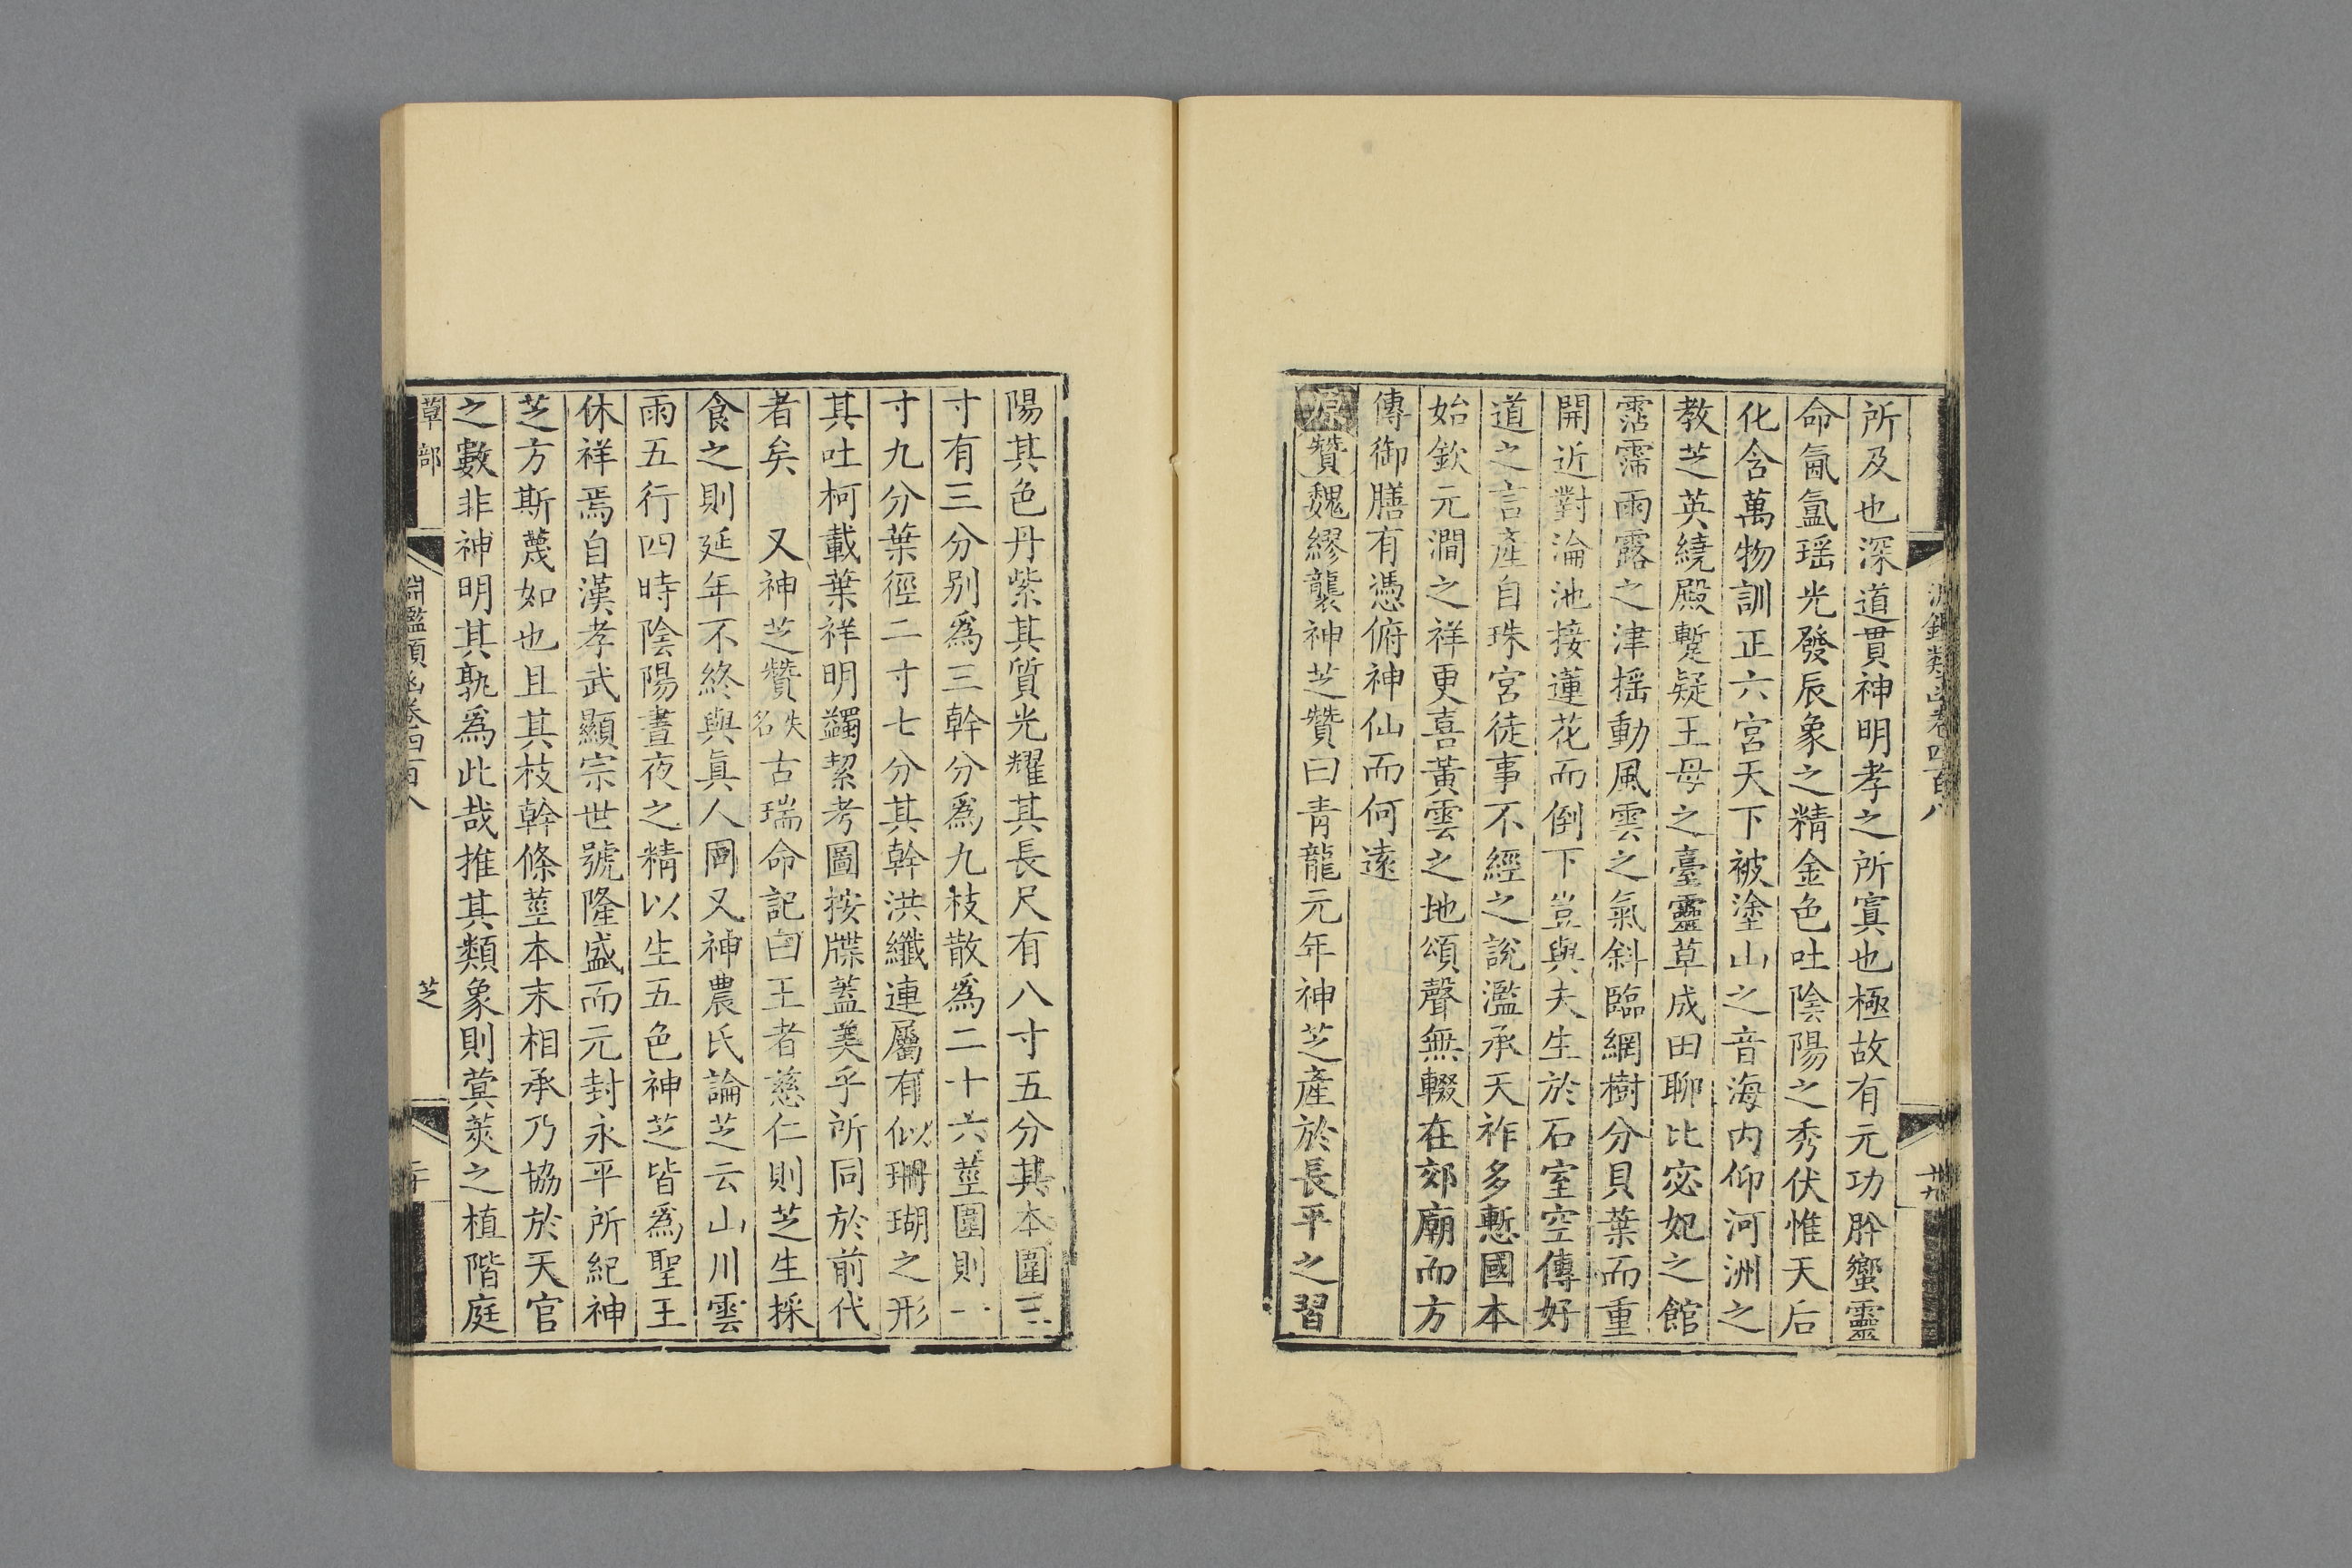 淵鑑類函卷四百八
十九
所及也深道貫神明孝之所寘也極故有元功肸蠁靈
命氤氳瑶光發辰象之精金色吐陰陽之秀伏惟天后
化含萬物訓正六宮天下被塗山之音海内仰河洲之
教芝英繞殿蹔疑王母之臺靈草成田聊比宓妃之館
霑霈雨露之津揺動風雲之氣斜臨網樹分貝葉而重
開近對淪池接蓮花而倒下豈與夫生於石室空傳好
道之言產自珠宮徒事不經之說濫承天祚多慙國本
始欽元澗之祥更喜黃雲之地頌聲無輟在郊廟而方
傳御膳有憑俯神仙而何遠
原贊魏繆襲神芝贊曰青龍元年神芝產於長平之習
陽其色丹紫其質光耀其長尺有八寸五分其本圍三
寸有三分别為三幹分為九枝散為二十六莖圍則一
寸九分葉徑二寸七分其幹洪纖連屬有似珊瑚之形
其吐柯載葉祥明蠲絜考圖按牒蓋美乎所同於前代
者矣 又神芝贊失名古瑞命記曰王者慈仁則芝生採
食之則延年不終與眞人同又神農氏論芝云山川雲
雨五行四時陰陽晝夜之精以生五色神芝皆為聖王
休祥焉自漢孝武顯宗世號隆盛而元封永平所紀神
芝方斯蔑如也且其枝幹條莖本末相承乃協於天官
之數非神明其孰為此哉推其類象則蓂莢之植階庭
草部
淵鑑類函卷四百八
芝
二十